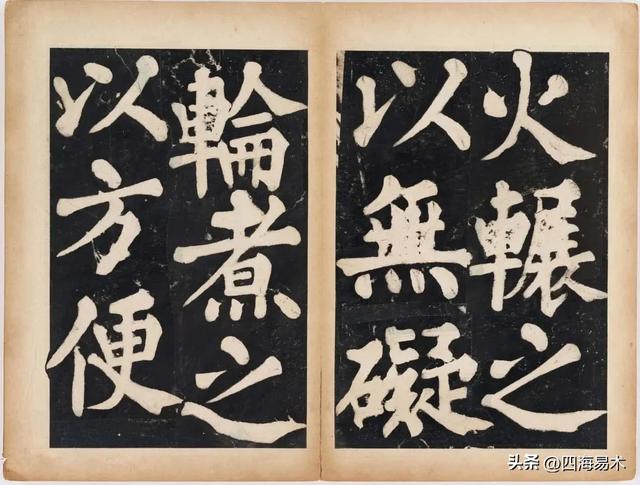 火輾之
以無礙
輪煮之
以方便
头条 @四海易木